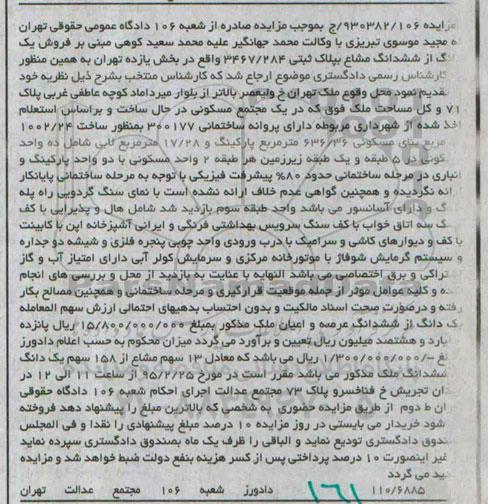 مزایده ۹۳۰۳۸۲/۱۰۶/ج بموجب مزایده صادره از شعبه ۱۰۶ دادگاه عمومی حقوقی تهران
له مجید موسوی تبریزی با وکالت محمد جهانگیر علیه محمد سعید کوهی مبنی بر فروش یک
نگ از ششدانگ مشاع بپلاک ثبتی ۳۴۶۷/۲۸۴ واقع در بخش یازده تهران به همین منظور
کارشناس رسمی دادگستری موضوع ارجاع شد که کارشناس منتخب بشرح ذیل نظریه خود
تقدیم نمود محل وقوع ملک تهران خ ولیعصر بالاتر از بلوار میرداماد کوچه عاطفی غربی پلاک
۷۱ و کل مساحت ملک فوق که در یک مجتمع مسکونی در حال ساخت و براساس استعلام
اخذ شده از شهرداری مربوطه دارای پروانه ساختمانی ۳۰۰۱۷۷ بمنظور ساخت ۱۰۰۲/۲۴
مربع بنای مسکونی ۶۳۶/۳۶ مترمربع پارکینگ و ۱۷/۲۸ مترمربع لابی شامل ده واحد
کونی در ۵ طبقه و یک طبقه زیرزمین هر طبقه ۲ واحد مسکونی با دو واحد پارکینگ و
انباری در مرحله ساختمانی حدود ۸۰% پیشرفت فیزیکی با توجه به مرحله ساختمانی پایانکار
ائه نگردیده و همچنین گواهی عدم خلاف ارائه نشده است با نمای سنگ گردویی راه پله
گ و دارای آسانسور می باشد واحد طبقه سوم بازدید شد شامل هال و پذیرایی با کف
گ سه اتاق خواب با کف سنگ سرویس بهداشتی فرنگی و ایرانی آشپزخانه اپن با کابینت
با کف و دیوارهای کاشی و سرامیک با درب ورودی واحد چوبی پنجره فلزی و شیشه دو جداره
و سیستم گرمایش شوفاژ با موتورخانه مرکزی و سرمایش کولر آبی دارای امتیاز آب و گاز
تراکی و برق اختصاصی می باشد النهایه با عنایت به بازدید از محل و بررسی های انجام
ده و کلیه عوامل موثر از جمله موقعیت قرارگیری و مرحله ساختمانی و همچنین مصالح بکار
رفته و درصورت صحت اسناد مالکیت و بدون احتساب بدهیهای احتمالی ارزش سهم المعامله
یک دانگ از ششدانگ عرصه و اعیان ملک مذکور بمبلغ ۱۵/۸۰۰/۰۰۰/۰۰۰ ریال پانزده
لیارد و هشتصد میلیون ریال تعیین و برآورد می گردد میزان محکوم به حسب اعلام دادورز
لغ -/۱/۳۰۰/۰۰۰/۰۰۰ ریال می باشد که معادل ۱۳ سهم مشاع از ۱۵۸ سهم یک دانگ
ششدانگ ملک مذکور می باشد مقرر است در مورخ ۹۵/۲/۲۵ از ساعت ۱۱ الی ۱۲ در
دان تجریش خ فناخسرو پلاک ۷۳ مجتمع عدالت اجرای احکام شعبه ۱۰۶ دادگاه حقوقی
ران ط دوم از طریق مزایده حضوری به شخصی که بالاترین مبلغ را پیشنهاد دهد فروخته
شود خریدار می بایستی در روز مزایده ۱۰ درصد مبلغ پیشنهادی را نقدا و فی المجلس
ندوق دادگستری تودیع نماید و الباقی را ظرف یک ماه بصندوق دادگستری سپرده نماید
غیر اینصورت ۱۰ درصد پرداختی پس از کسر هزینه بنفع دولت ضبط خواهد شد و مزایده
دید می گردد
۱۱۰/۶۸۸۵ دادورز شعبه ۱۰۶ مجتمع عدالت تهران
۱۶۱